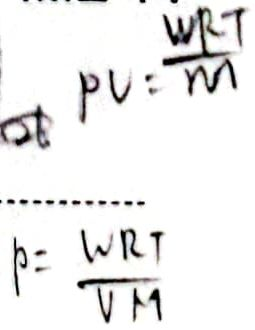 PV = WRT / M
P = WRT / VM